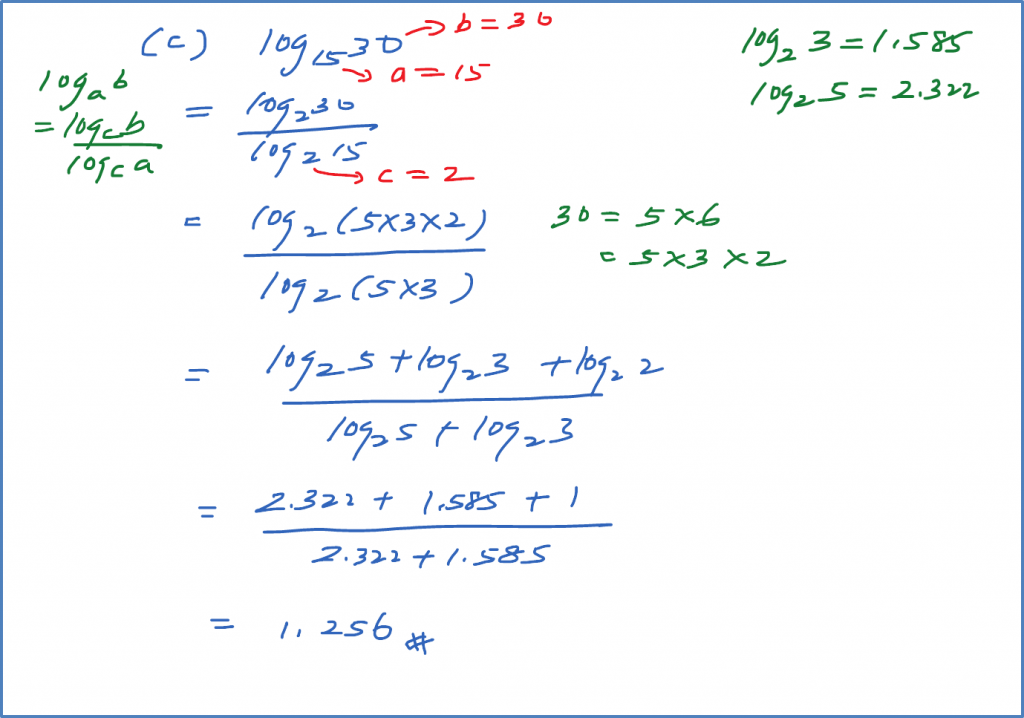 (c) log₁₅30 → b = 30
→ a = 15
log₂ 3 = 1.585
log₂ 5 = 2.322
logₐ b
= log_c b
log_c a
= log₂ 30
log₂ 15
→ c = 2
= log₂ (5×3×2)
log₂ (5×3)
30 = 5 × 6
= 5 × 3 × 2
= log₂ 5 + log₂ 3 + log₂ 2
log₂ 5 + log₂ 3
= 2.322 + 1.585 + 1
2.322 + 1.585
= 1.256 #